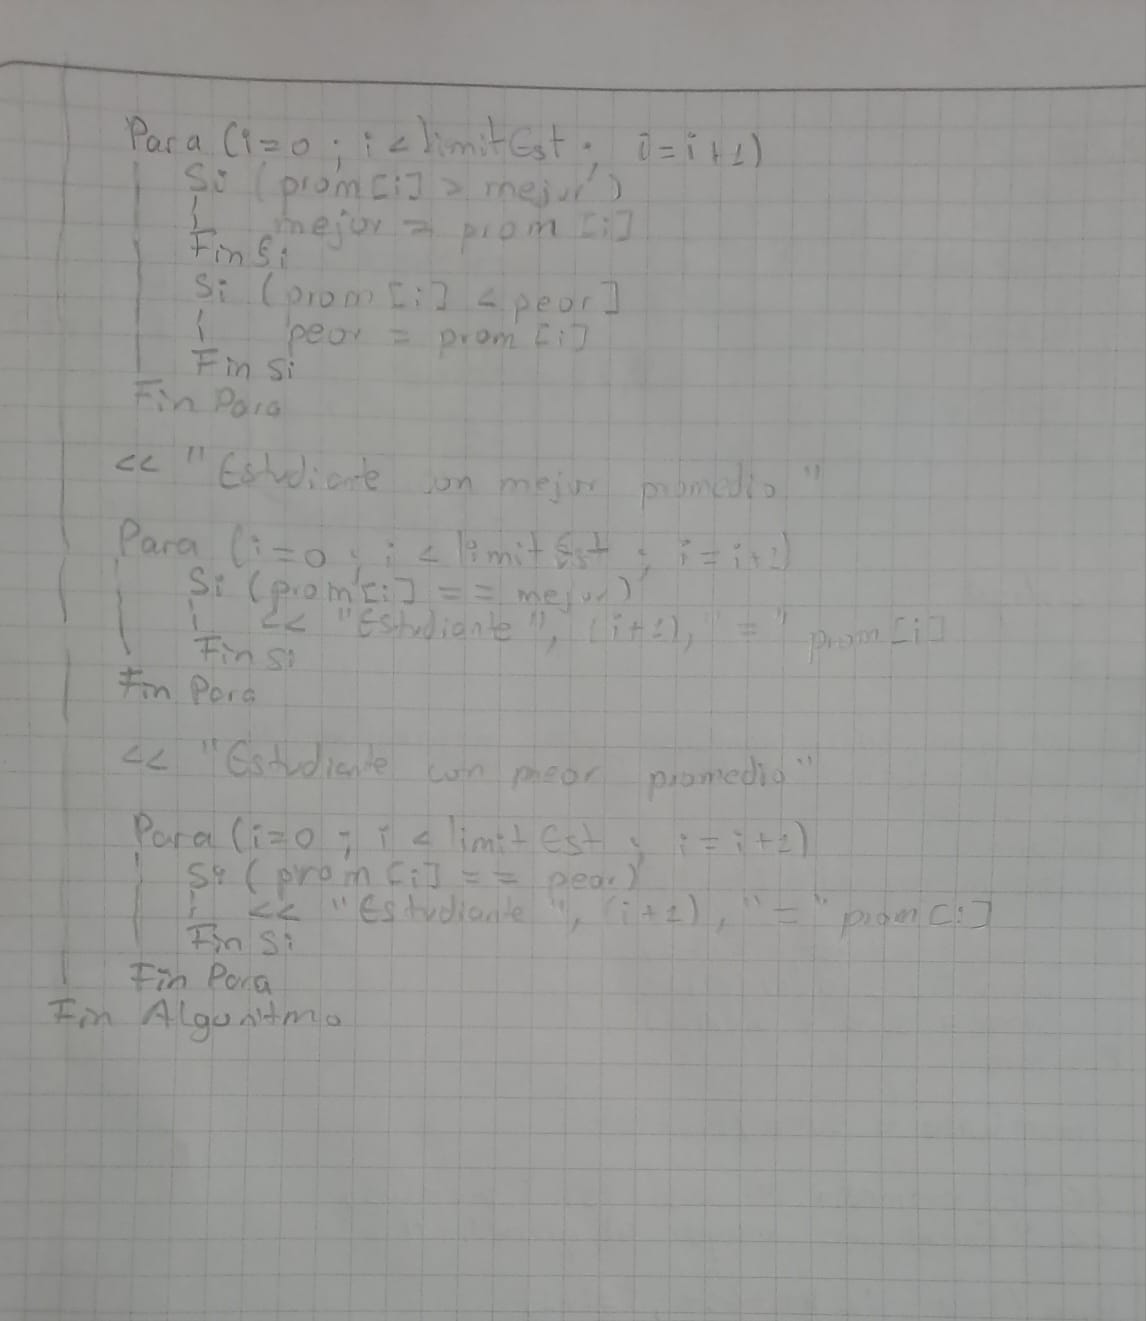 Para (i=0 ; i < limitEst ; i=i+1)
Si (prom[i] > mejor)
mejor = prom [i]
Fin Si
Si (prom [i] < peor]
peor = prom [i]
Fin Si
Fin Para
<< "Estudiante con mejor promedio"
Para (i=0 ; i < limitEst ; i = i+1)
Si (prom[i] == mejor)
<< "Estudiante", (i+1), "=" prom [i]
Fin Si
Fin Para
<< "Estudiante con peor promedio"
Para (i=0 ; i < limitEst ; i = i+1)
Si (prom [i] == peor)
<< "Estudiante", (i+1), "=" prom [i]
Fin Si
Fin Para
Fin Algoritmo